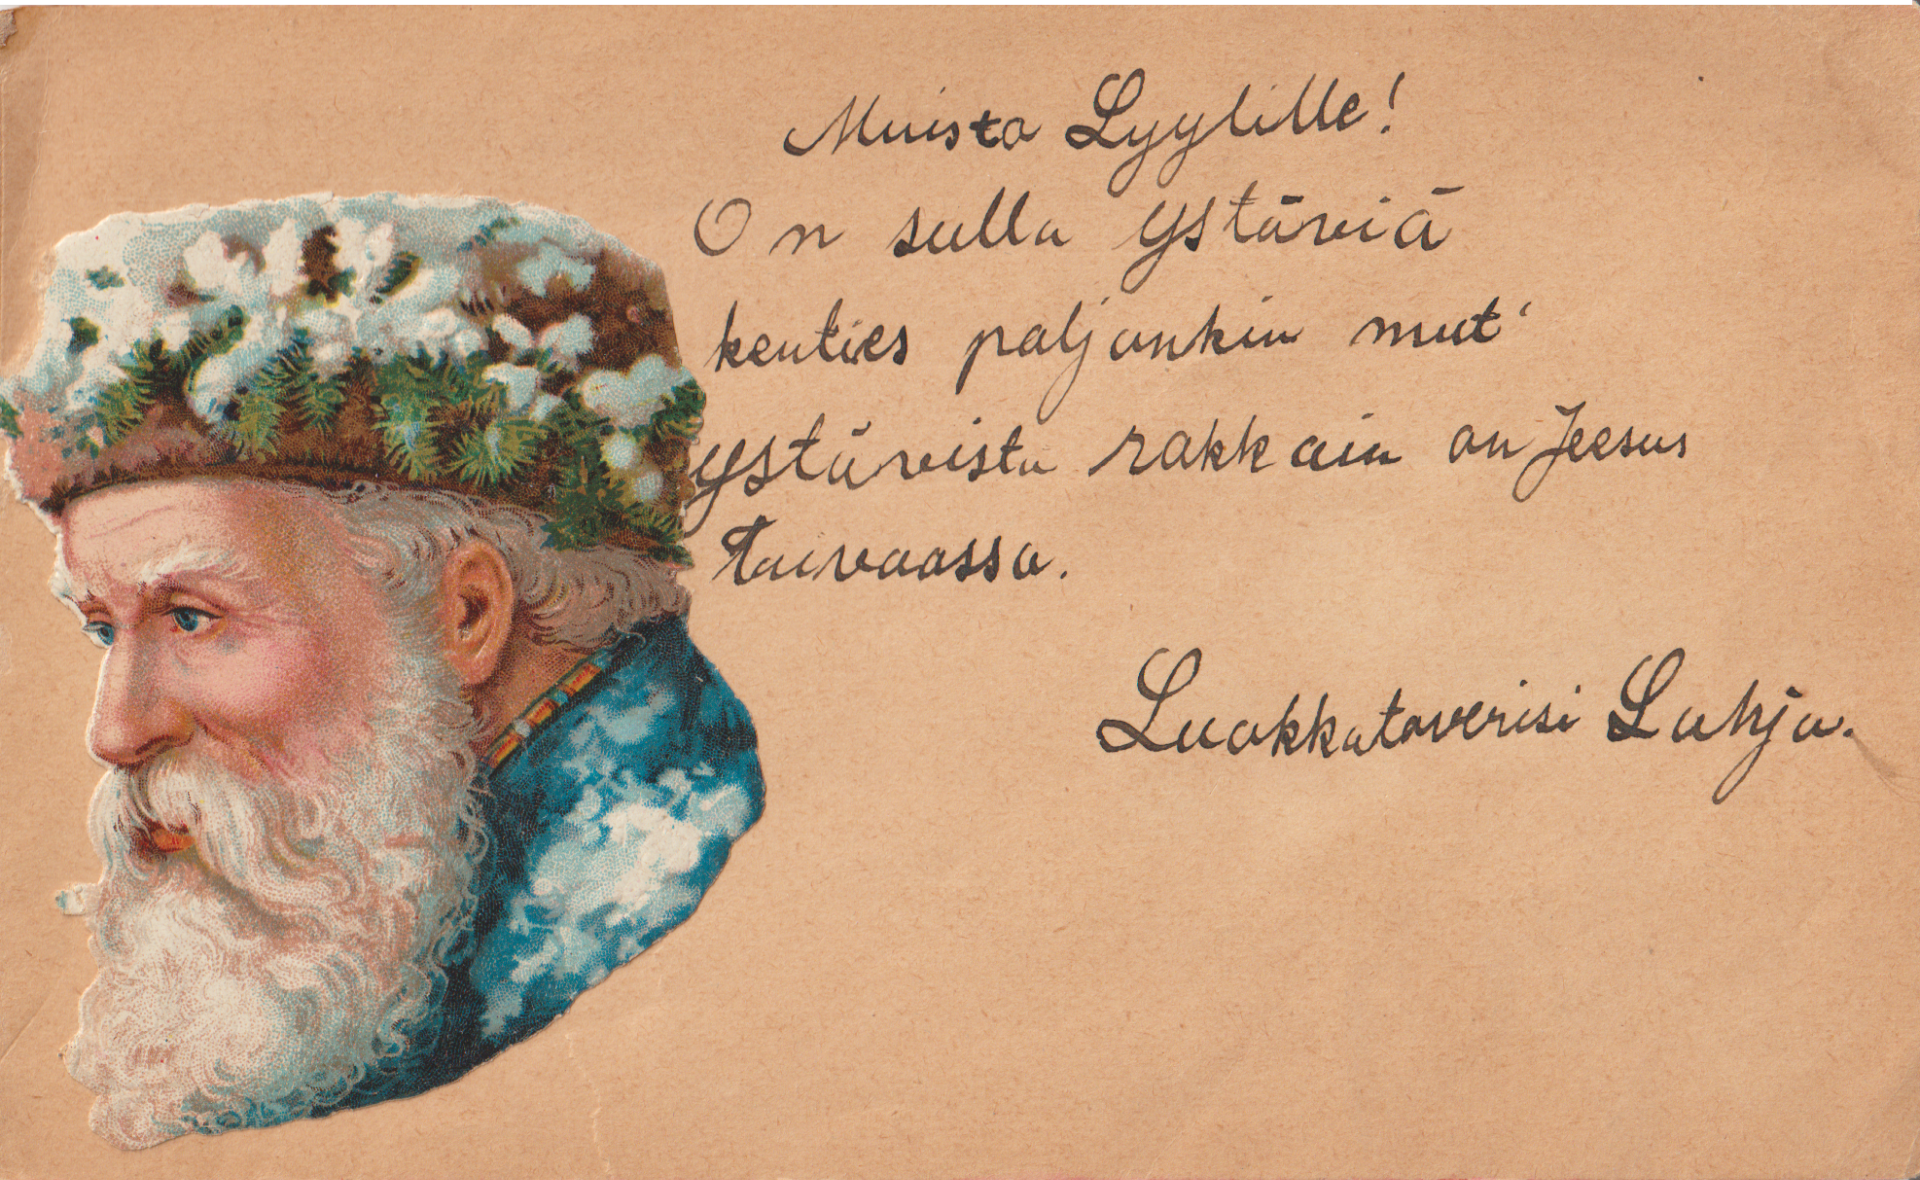 Muisto Lyylille!
On sulla ystäviä
kenties paljonkin mut'
ystävistä rakkain on Jeesus
taivaassa.
Luokkatoverisi Lahja.